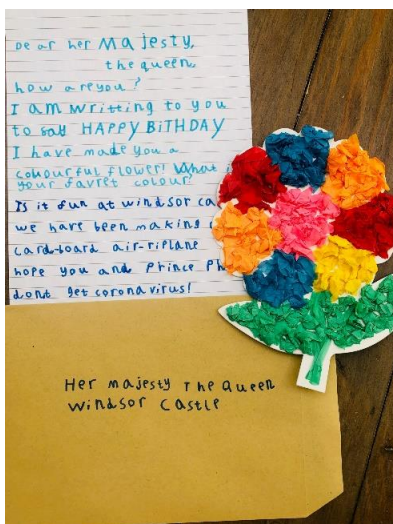 Dear her Majesty,
the queen,
how are you?
I am writting to you
to say HAPPY BiTHDAY
I have made you a
colourful flower! What
your favret colour
Is it fun at windsor ca
we have been making
card-board air-riplane
hope you and Prince Ph
dont get coronavirus!
Her majesty The Queen
Windsor Castle